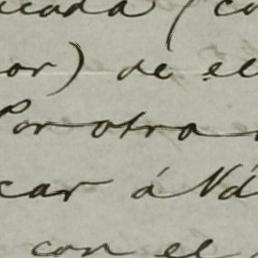 icada (co
or) de el
Por otra
car á Ná
con el